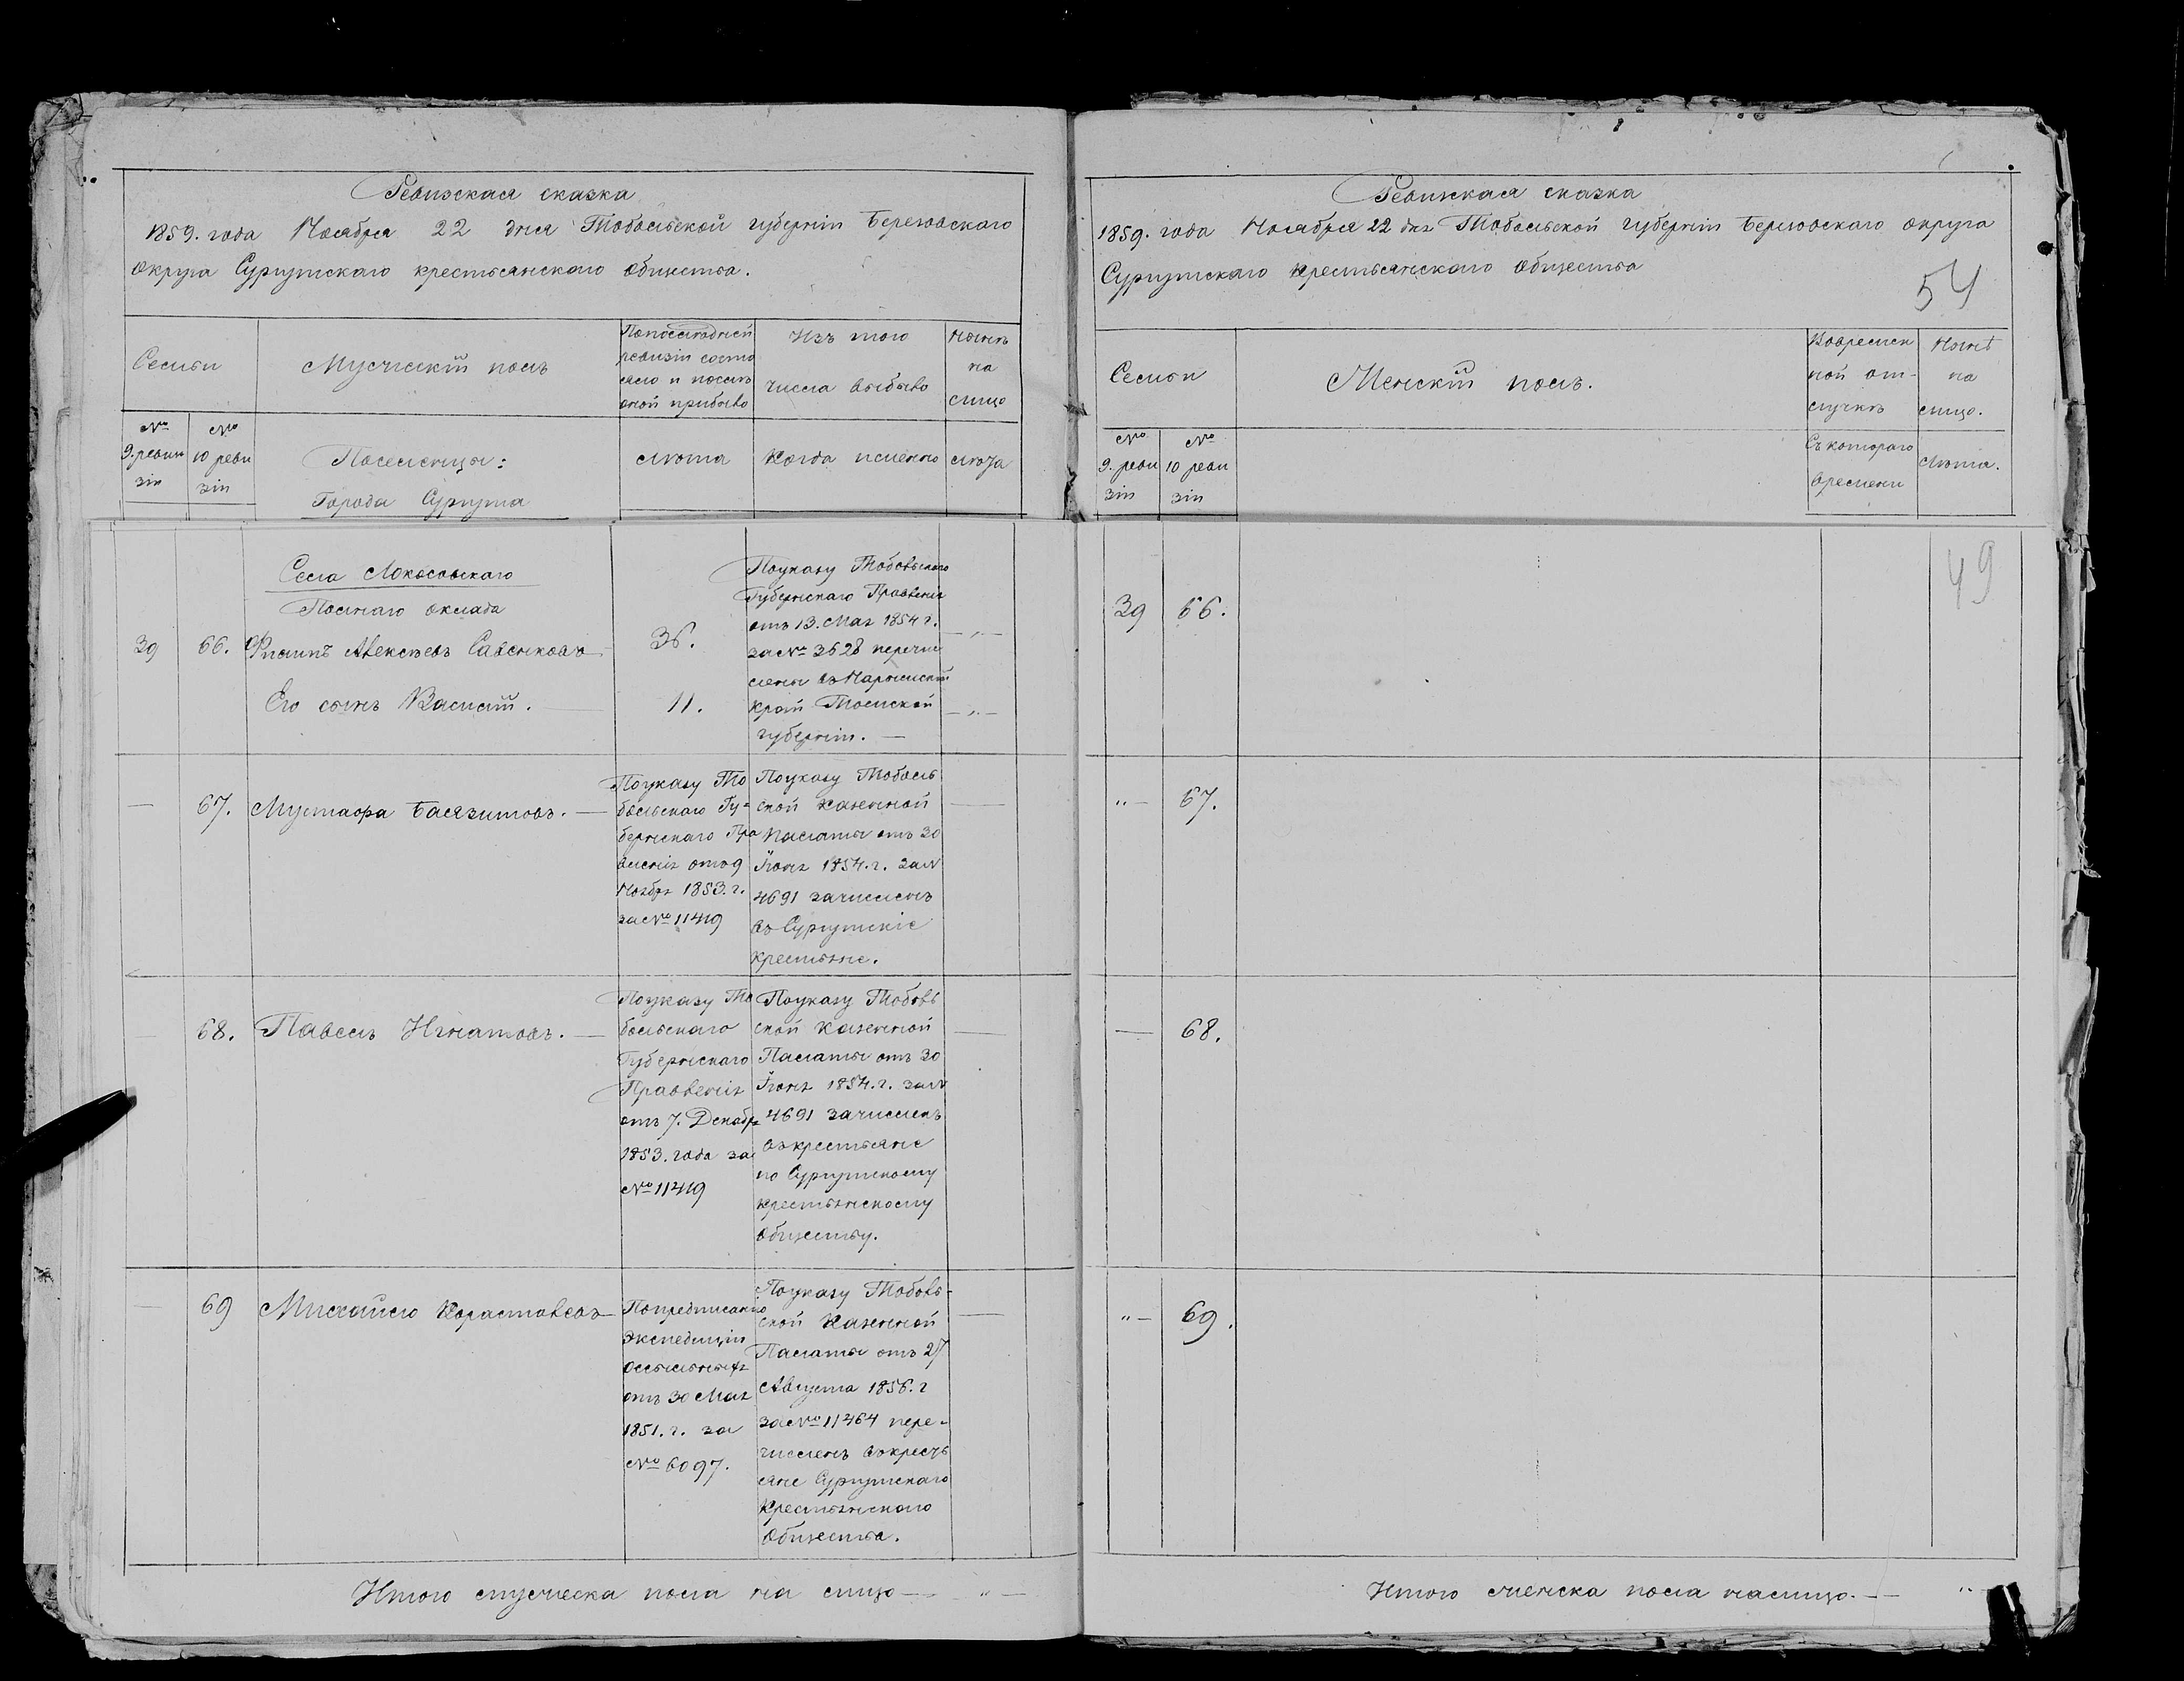 Ревизская сказка
1859. года Ноября 22 дня Тобольской губерніи Березовскаго
округа Сургутскаго крестьянскаго общества.
Семьи
Мужескій полъ
Попоследней
ревизіи состо
яло и послѣ
оной прибыло
Изъ того
числа выбыло
Нынѣ
на
лицо
№
9. реви
зіи
№
10 реви
зіи
Поселенцы:
Города Сургута
лѣта
Когда именно
лѣта
Села Локосовскаго
Полнаго оклада
39 66. Филипъ Алексѣевъ Савенковъ 36.
Его сынъ Василій. 11.
Поуказу Тобольскаго
Губернскаго Правленія
отъ 13. Мая 1854 г.
за № 3628 перечи
слены въ Нарымскій
край Томской
губерніи. —
— 67. Мустафа Баязитовъ. —
Поуказу То
больскаго Гу-
бернскаго Пра
вленія отъ 9
Ноября 1853. г.
за № 11419
Поуказу Тоболь
ской Казенной
Палаты отъ 30
Іюня 1854. г. за №
4691 зачисленъ
въ Сургутскіе
крестьяне.
— 68. Павелъ Игнатовъ. —
Поуказу То
больскаго
Губернскаго
Правленія
отъ 7. Декабря
1853. года за
№ 11419
Поуказу Тоболь
ской Казенной
Палаты отъ 30
Іюня 1854. г. за №
4691 зачисленъ
въ крестьяне
по Сургутскому
крестьянскому
обществу.
— 69 Михайло
Попредписанію
экспедиціи
оссыльныхъ
отъ 30 Мая
1851. г. за
№ 6097.
Поуказу Тоболь-
ской Казенной
Палаты отъ 27
Августа 1856. г
за № 11464 пере-
численъ въ кресть
яне Сургутскаго
Крестьянскаго
Общества.
Итого мужеска пола на лицо — " —
Ревизская сказка
1859. года Ноября 22 дня Тобольской губерніи Березовскаго округа
Сургутскаго крестьянскаго общества
54
Семьи
Женскій полъ.
Вовремен
ной от-
лучкѣ
Нынѣ
на
лицо.
№
9. реви
зіи
№
10 реви
зіи
Съ котораго
времени
Лѣта.
49
39 66.
"— 67.
— 68.
"— 69.
Итого женска пола налицо. — "